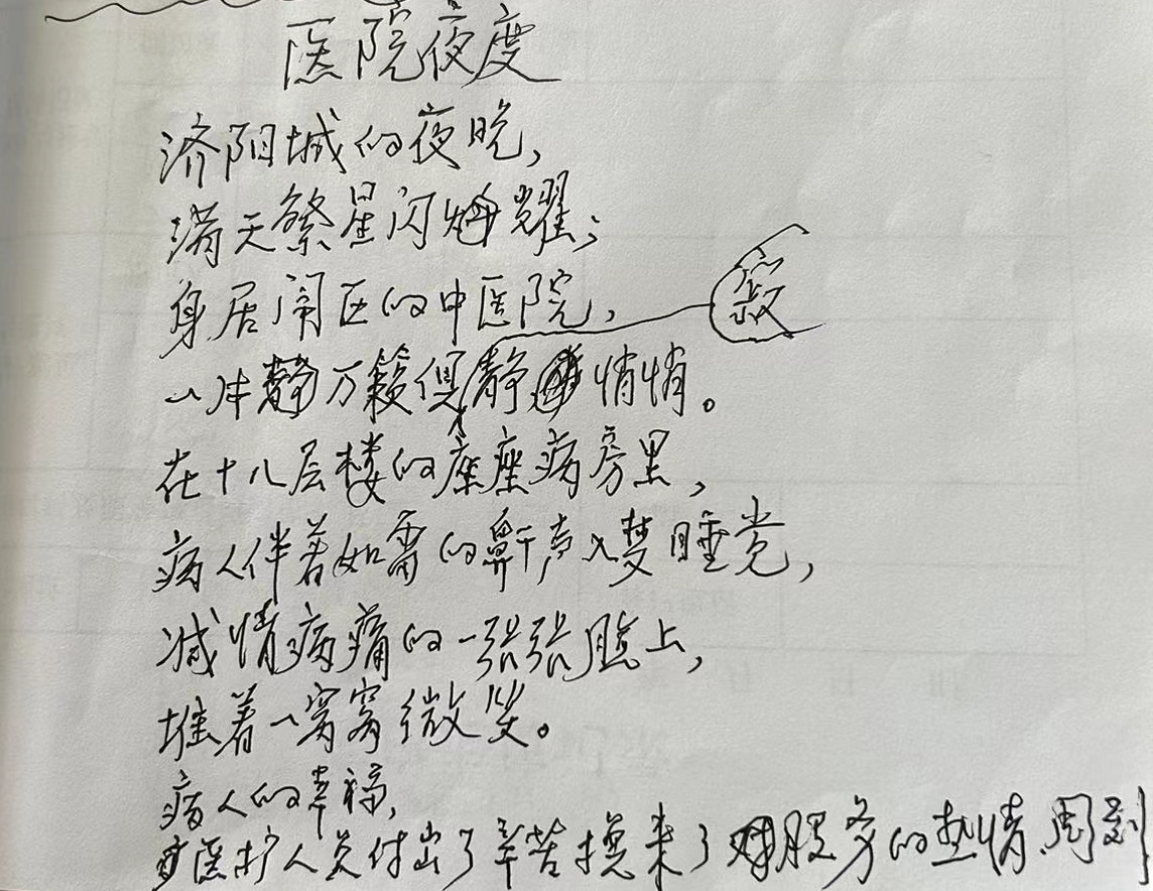 医院夜度
济阳城的夜晚，
满天繁星闪耀；
身居闹区的中医院，
寂
一片万籁俱静悄悄。
在十八层楼的座座病房里，
病人伴着如雷的鼾声入梦睡觉，
减情病痛的一张张脸上，
堆着一窝窝微笑。
病人的幸福，
医护人员付出了辛苦换来了服务的热情周到